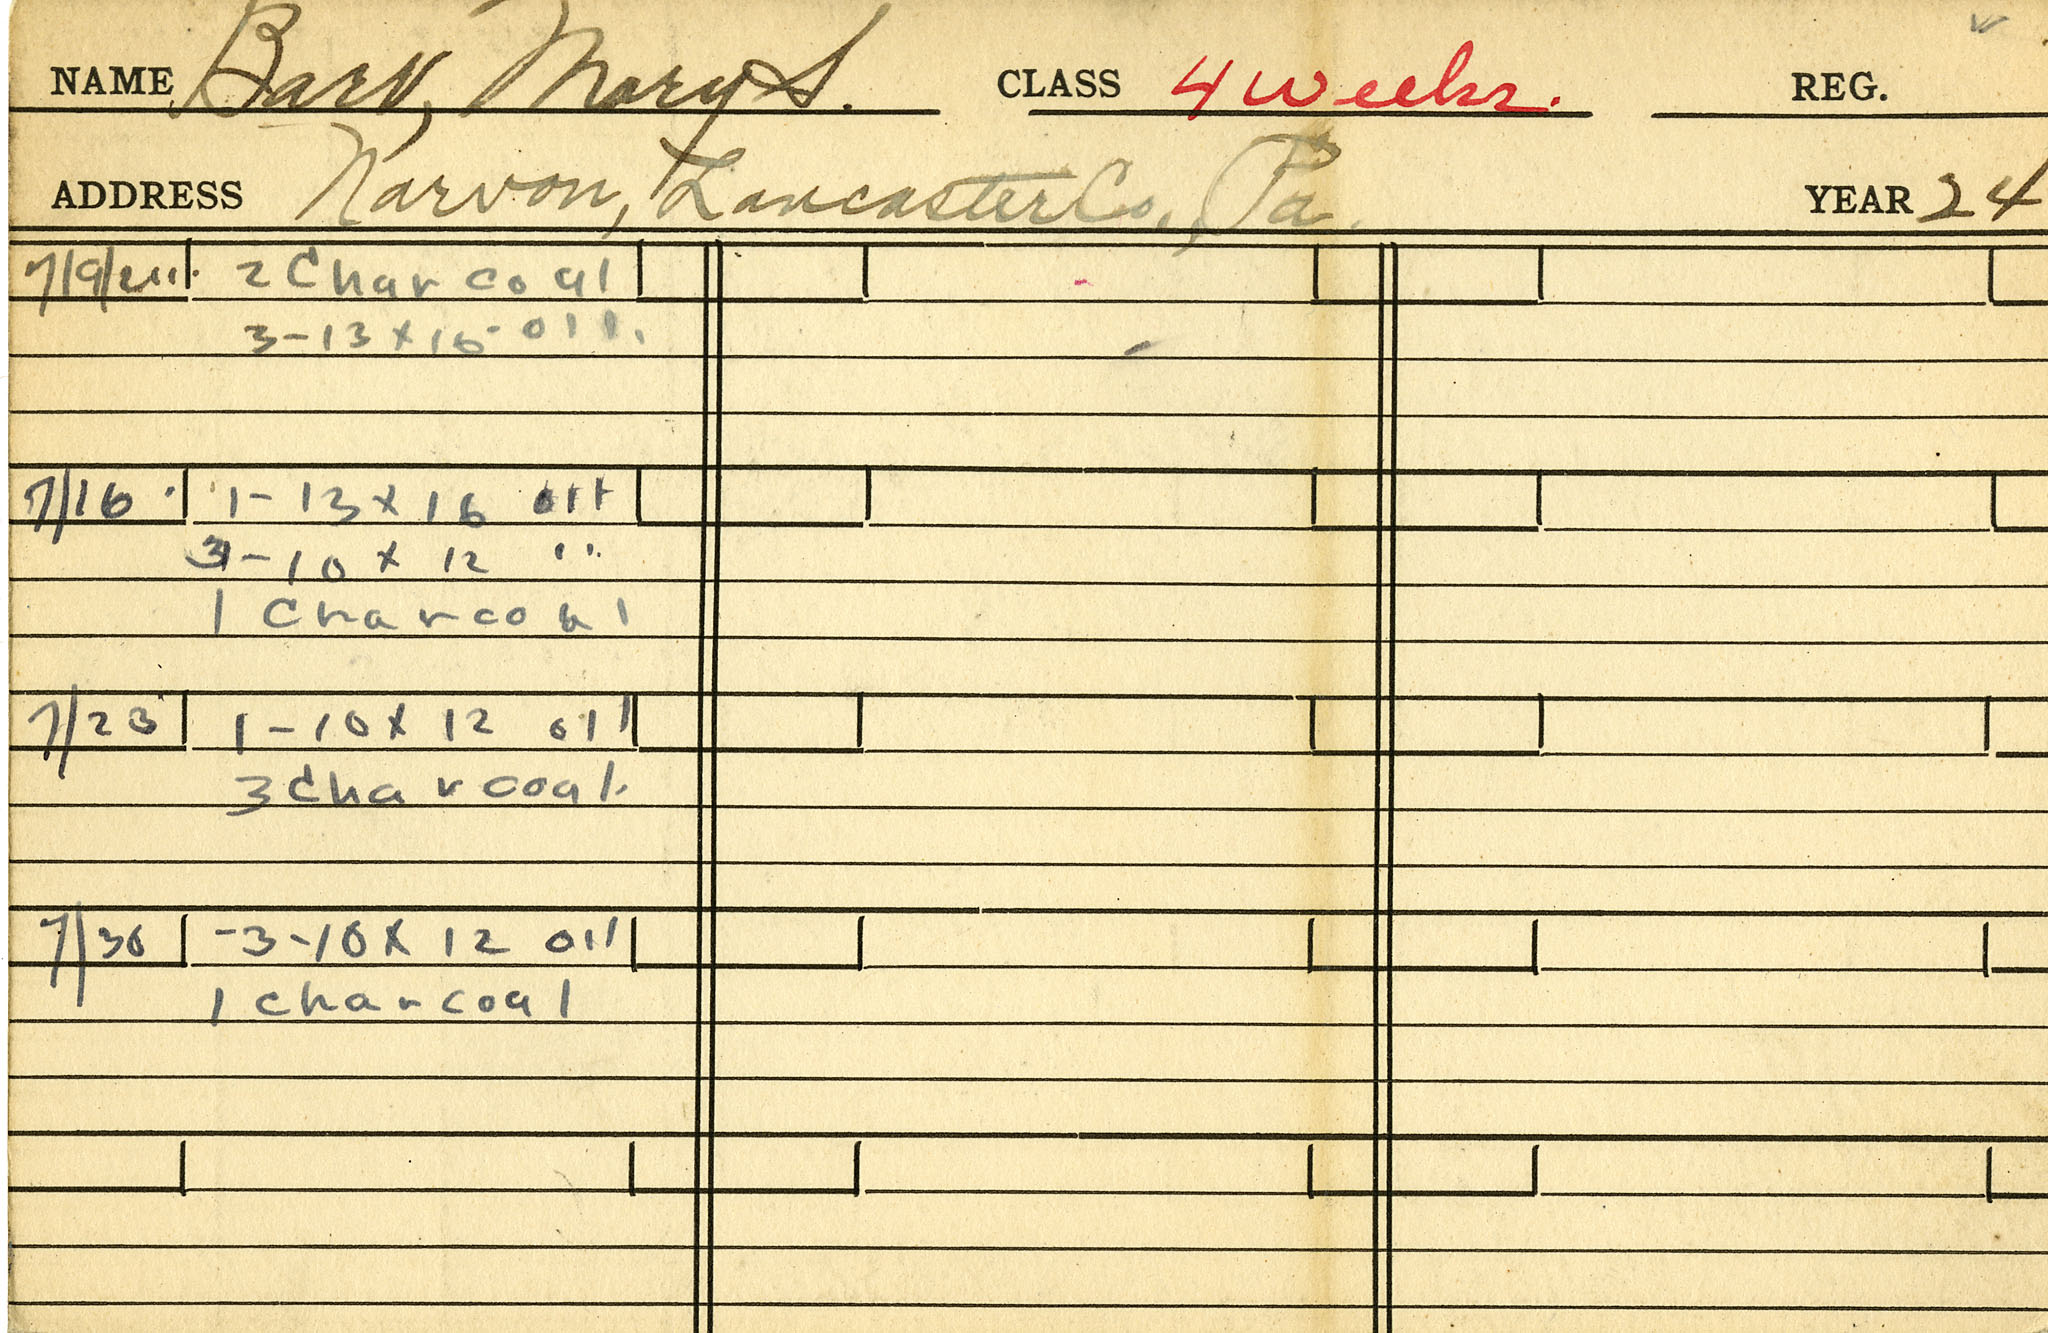 NAME Barr, Mary S. CLASS 4 weeks. REG.
ADDRESS Narvon, Lancaster Co., Pa. YEAR 24
7/9/24 2 Charcoal
3-13x16 oil.
7/16 1-13x16 oil
3-10x12 ''
1 Charcoal
7/23 1-10x12 oil
3 Charcoal.
7/30 -3-10x12 oil
1 charcoal